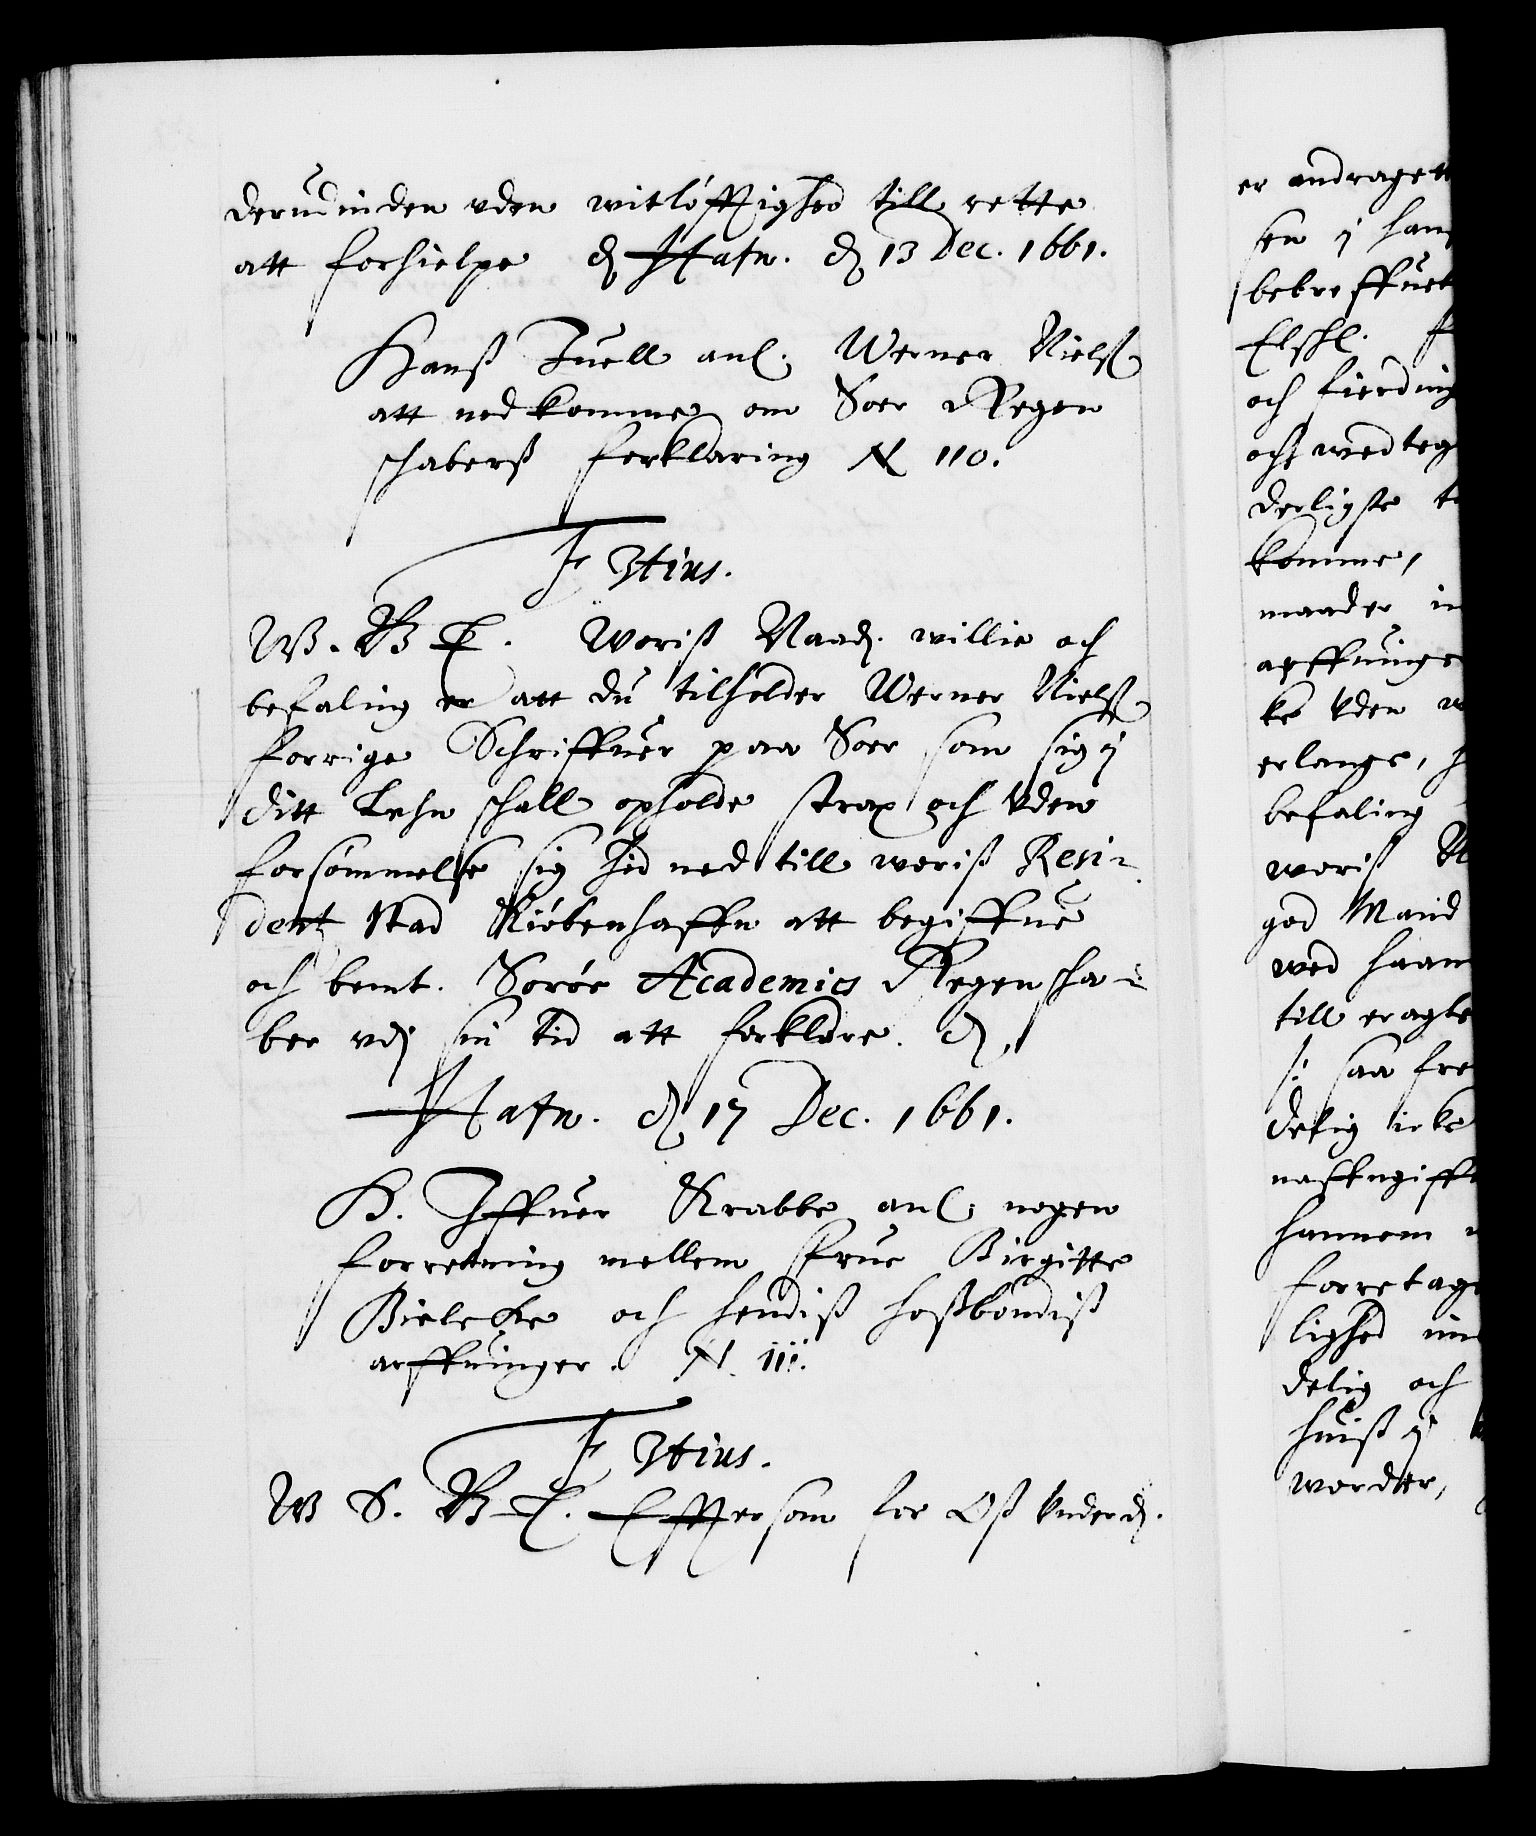 derudinden uden witløfftighed till rette
att forhielpe d Hafn. d 13 Dec. 1661.
Hanß Juell anl: Werner Nielß
att nedkomme om Soer Regen
schaberß forklaring N 110.
F 3tius.
W. G T. Woriß Naad. willie och
befaling er att du tilholder Werner Nielß
forrige Schriffuer paa Soer som sig i
ditt Lehn schall opholde strax och uden
forsømmelse sig hid ned till woriß Resi-
dentz Stad Kiøbenhaffn att begiffue
och bemt. Sorøe Academies Regenscha-
ber udj sin tid att forklare. d.
Hafn. d 17 Dec. 1661.
H. Iffuer Krabbe anl: nogen
forretning mellem Frue Birgitte
Bielcke och hendiß hoßbondiß
arffuinger. N. 111.
F 3tius.
W S. G T. Effter som for Oß underd.
er andragett
sen i hanß
bekreffuet
Elschl.
och fierding
och wedteg
derligste
komme,
maader in
arffuinge
ke uden
erlange,
befaling
woriß N
god Mand
wed haan
till eragte
/: saa fre
delig icke
naffngiffu
hannem
forretag
lighed
delig och
huiß i
worder,